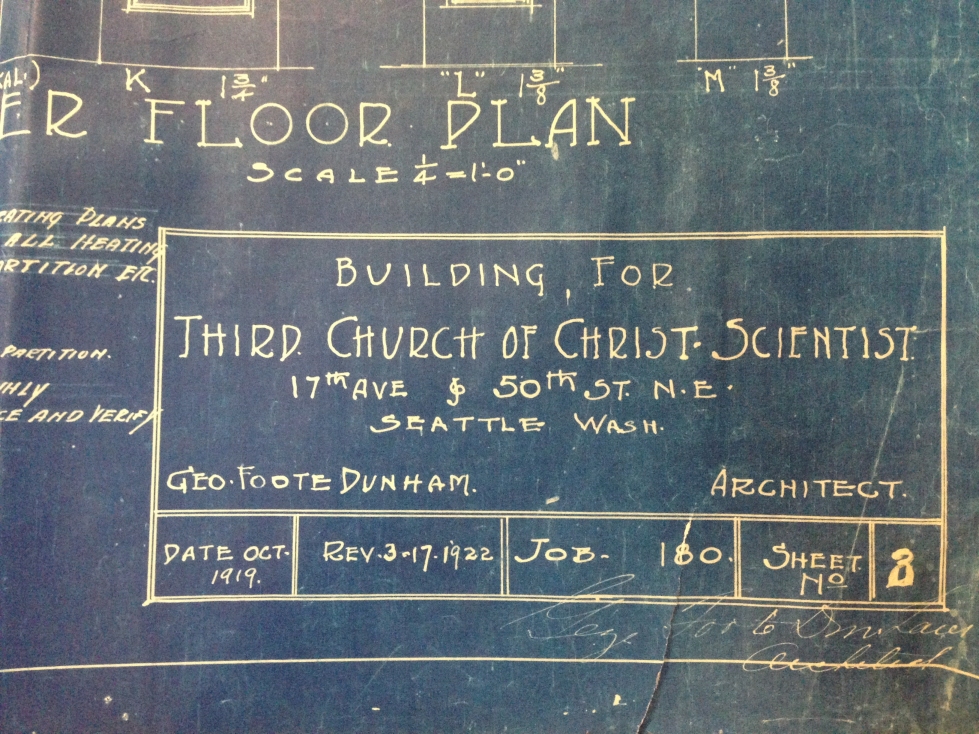 CAL.) K 1 3/4" "L" 1 3/8" "M" 1 3/8"
ER FLOOR PLAN
SCALE 1/4 = 1'-0"
ATING PLANS
ALL HEATING
ARTITION ETC.
PARTITION.
HLY
CE AND VERIFY
BUILDING FOR
THIRD. CHURCH OF CHRIST. SCIENTIST.
17th AVE & 50th ST. N.E.
SEATTLE WASH.
GEO. FOOTE DUNHAM. ARCHITECT.
DATE OCT. 1919. REV. 3-17.1922 JOB- 180. SHEET. No 3
Geo. Foote Dunham
Architect